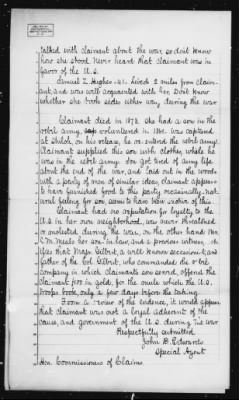 talked with claimant about the war, so didnt know
how she stood. Never heard that claimant was in
favor of the U.S.
Samuel L. Hughes - 41. Lived 2 miles from claim-
ant, and was well acquainted with her. Dont know
whether she took sides either way, during the war
Claimant died in 1872. She had a son in the
rebel army, volunteered in 1861. was captured
at Shiloh, on his release, he re-entered the rebel army.
Claimant supplied this son with clothes while he
was in the rebel army. Son got tired of army life
about the end of the war, and laid out in the woods
with a party of men of similar ideas, claimant appears
to have furnished food to this party occasionally. Nat-
ural feeling for son, seems to have been motive of this.
Claimant had no reputation for loyalty to the
U.S. in her own neighborhood, was never threatened
or molested during the war, on the other hand
her son in law, and a previous witness,
that Major Gilbert, a well known secessionist, and
father of the Col Gilbert, who commanded the rebel
company in which Claimants son served, offered the
claimant in gold, for the mule which the U.S.
troops took, only a few days before the taking.
From a review of the evidence, it would appear
that claimant was not a loyal adherent of the
cause, and government of the U.S. during the war
Respectfully submitted
John D. Edwards
Special Agent
Hon. Commissioners of Claims